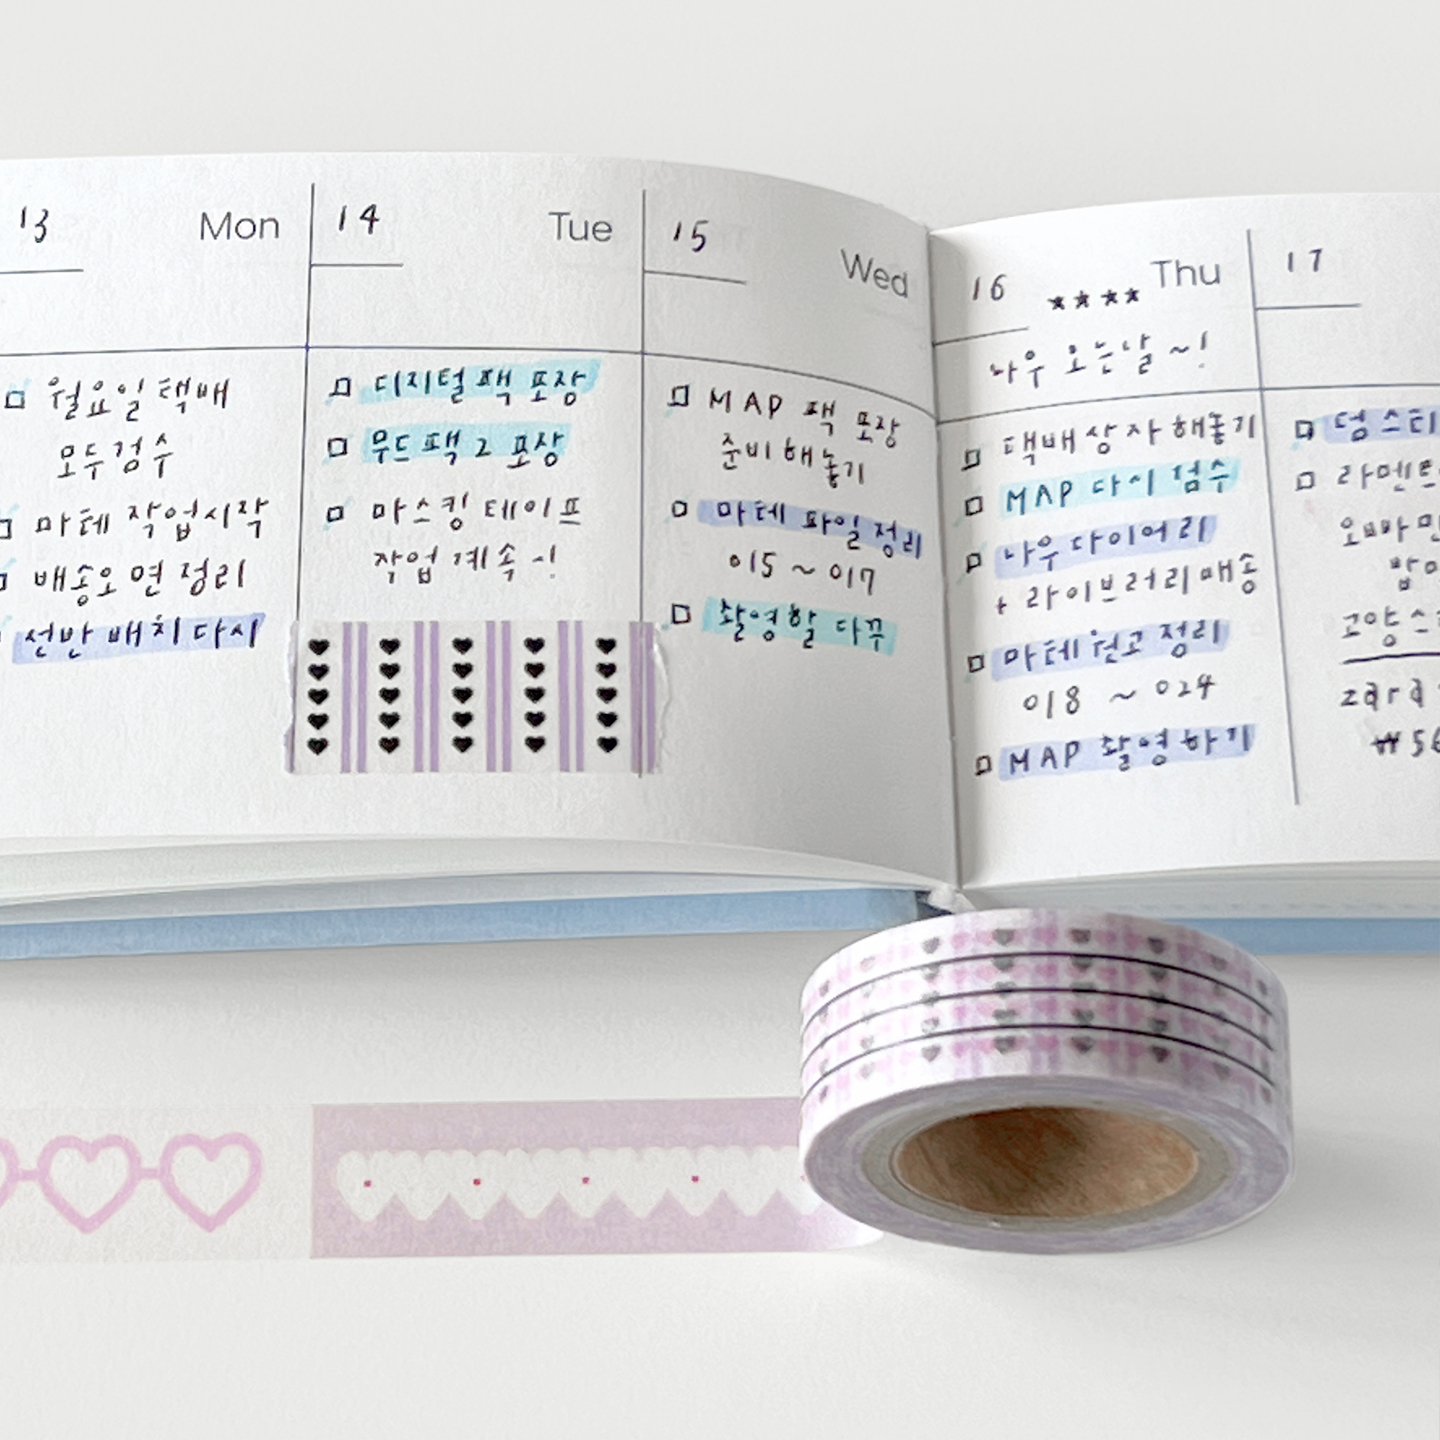 13 Mon
월요일 택배
모두 검수
마테 작업시작
배송오면 정리
선반 배치 다시
14 Tue
디지털 팩 포장
무드팩 2 포장
마스킹테이프
작업 계속~!
15 Wed
MAP 팩 포장
준비해놓기
마테 파일정리
015 ~ 017
촬영할 다꾸
16 ★★★★ Thu
나우 오는날 ~!
택배상자해놓기
MAP 다시 점수
나우다이어리
+ 라이브러리 배송
마테원고 정리
018 ~ 024
MAP 촬영하기
17
zara